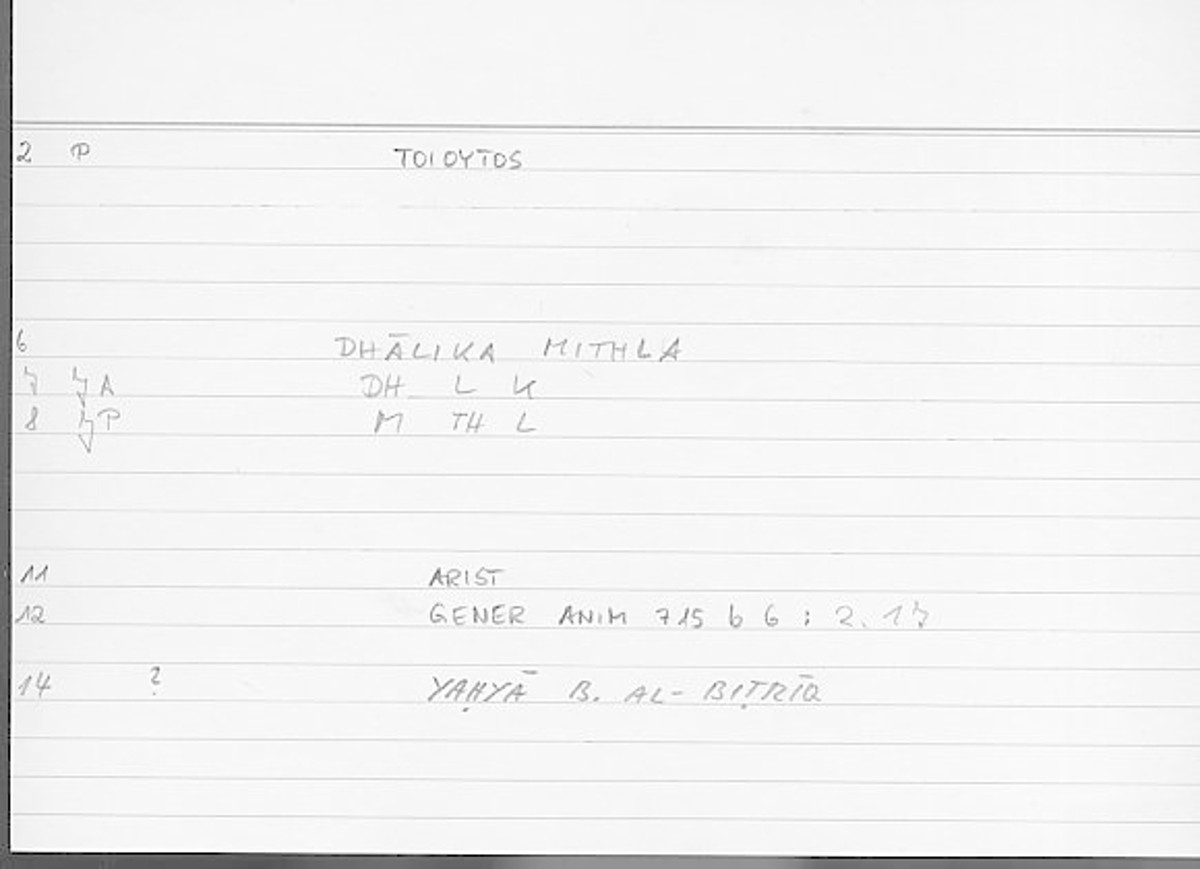 2 P TOIOYTOS
6 DHĀLIKA MITHLA
7 A DH L K
8 P M TH L
11 ARIST
12 GENER ANIM 715 b 6 : 2.17
14 ? YAḤYĀ B. AL-BIṬRĪQ